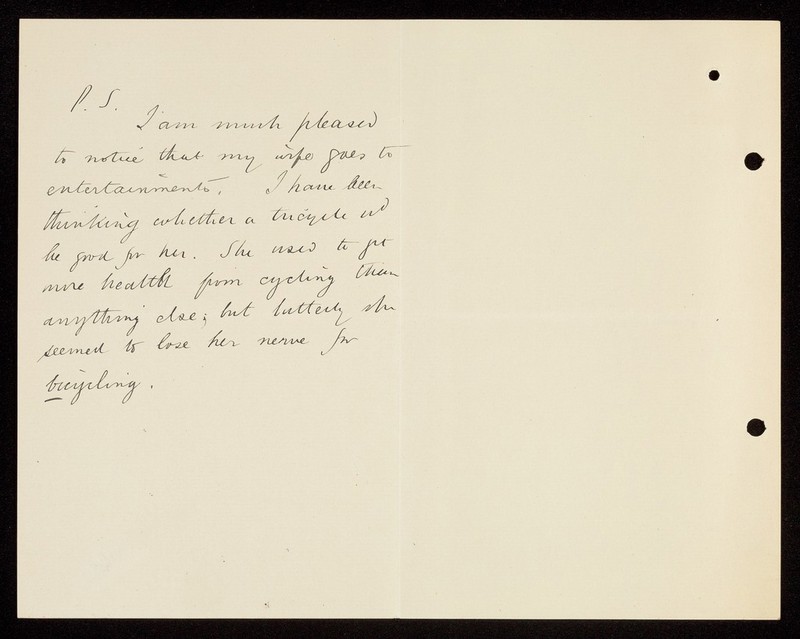 P.S.
I am much pleased
to notice that my wife goes to
entertainments. I have been
thinking whether a tricycle wd
be good for her. She used to get
more health from cycling than
anything else; but latterly she
seemed to lose her nerve for
bicycling.